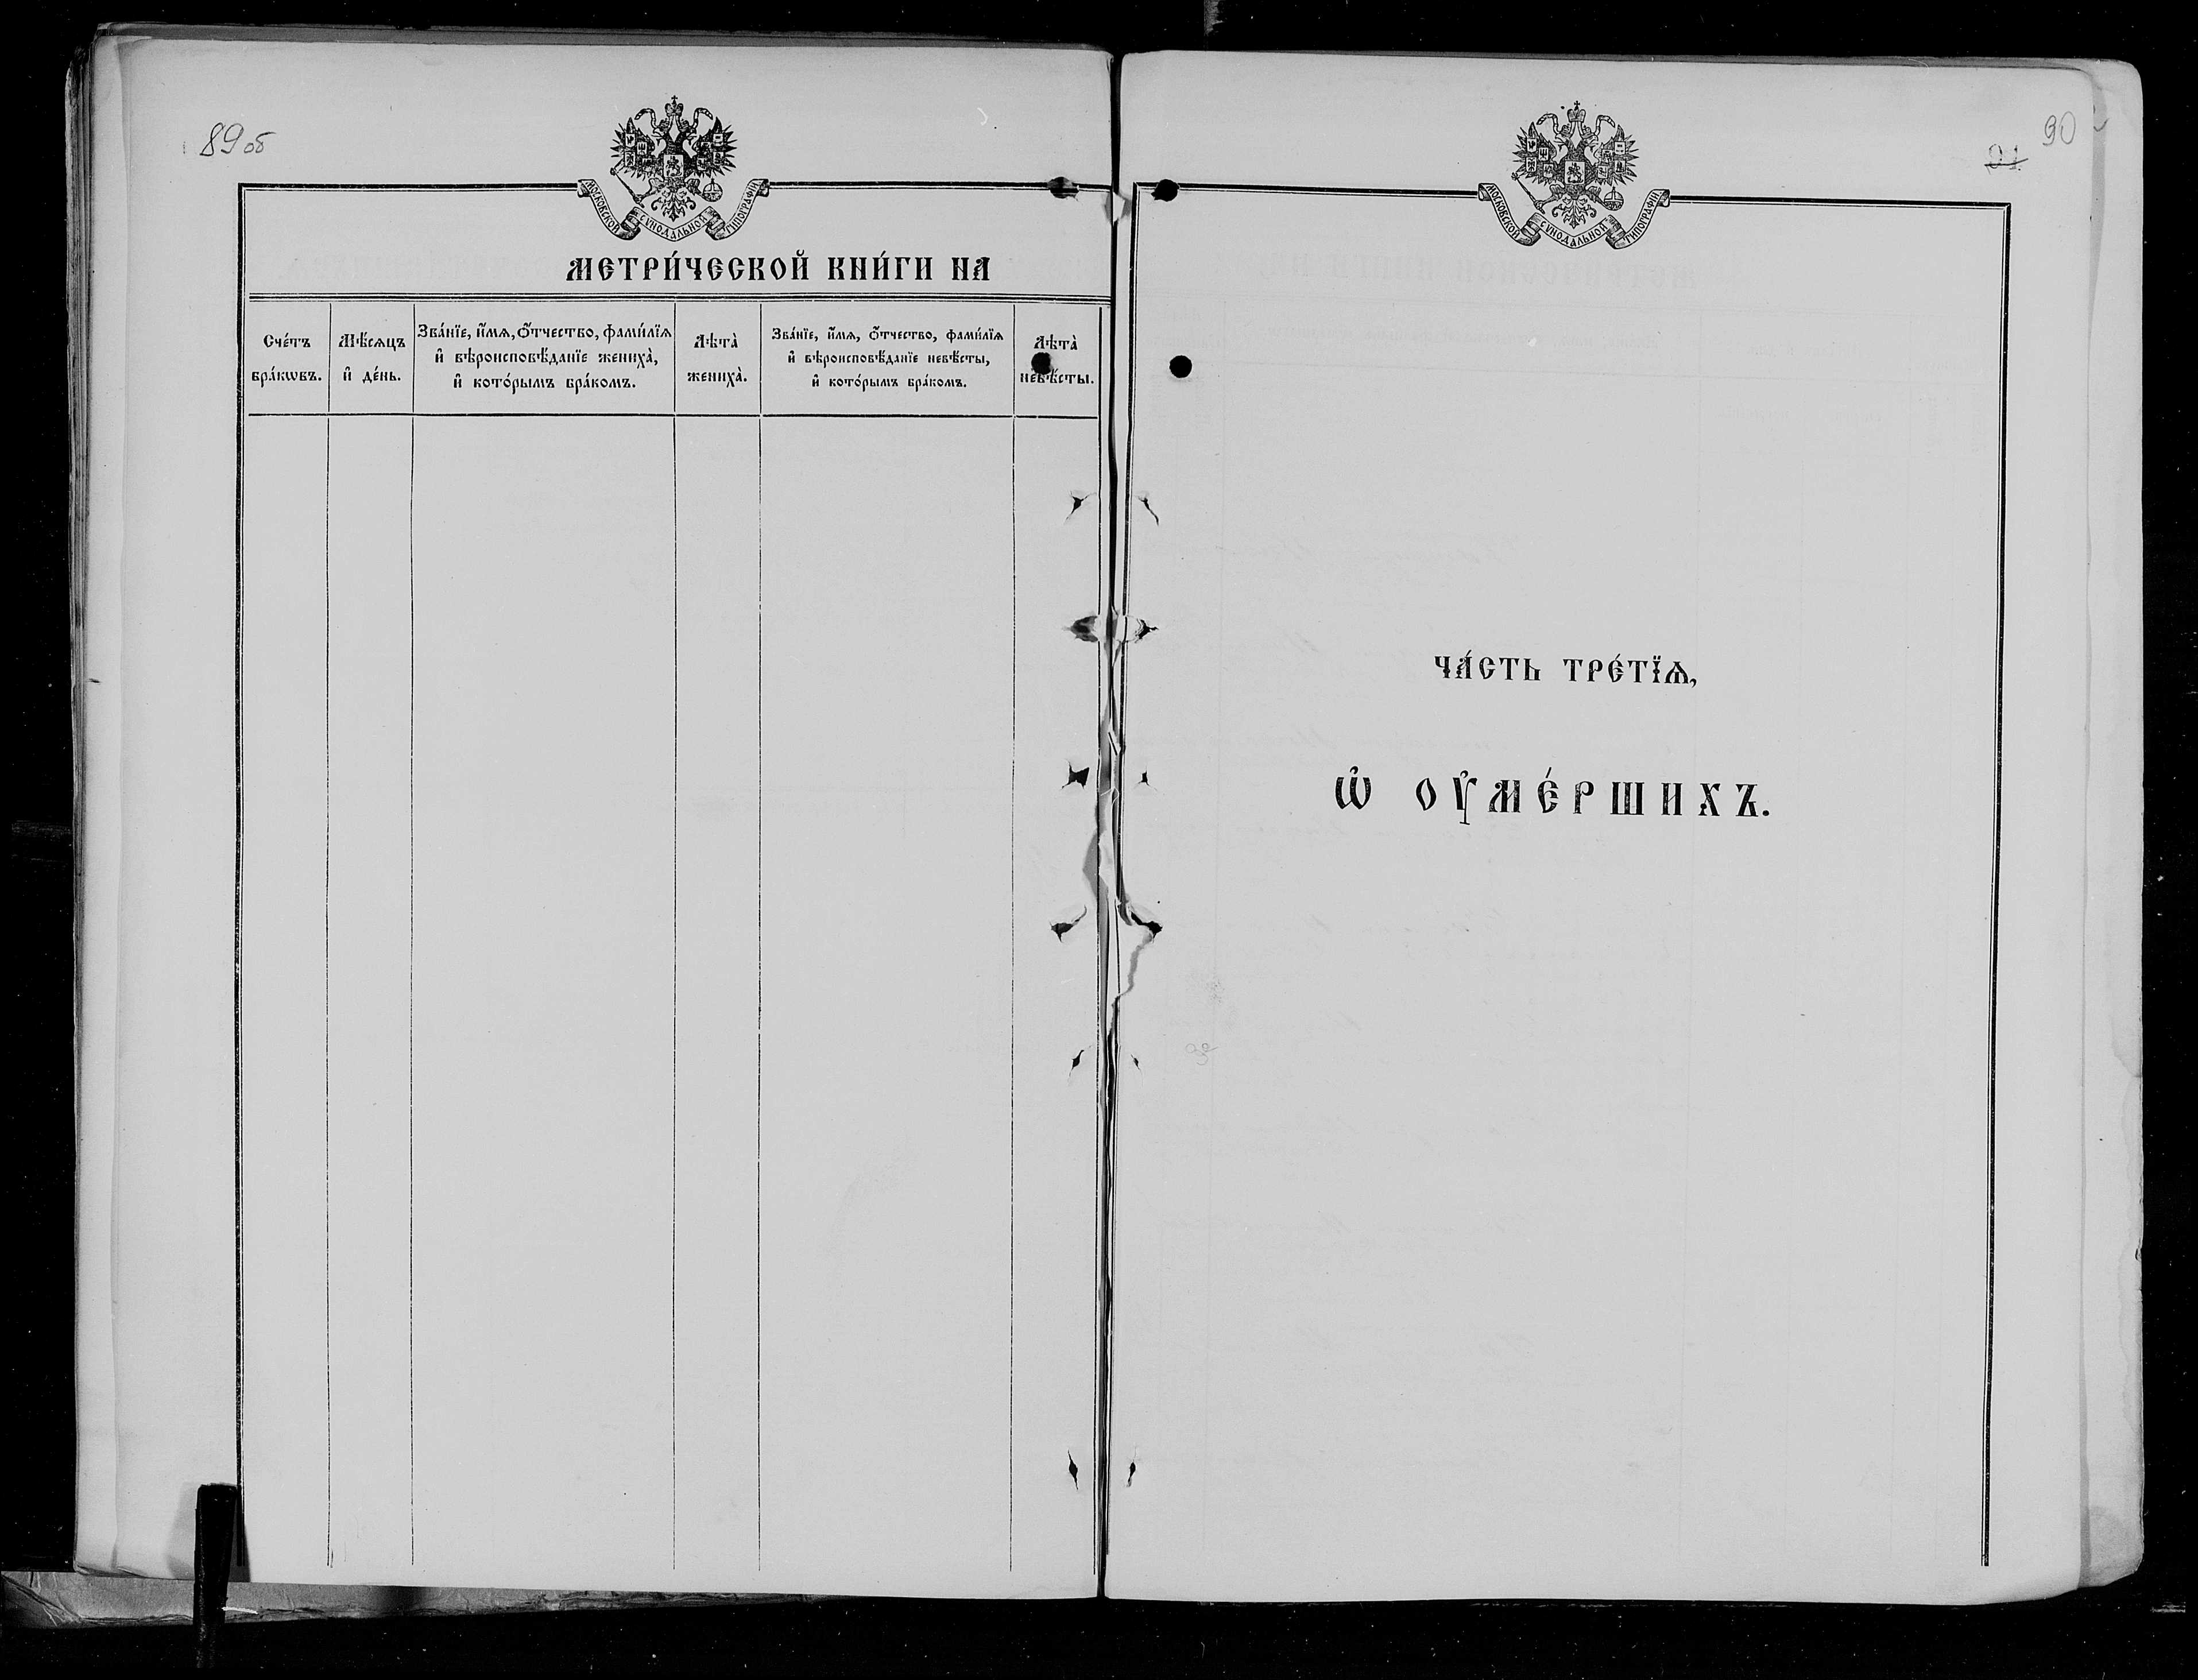 89об
МОСКОВСКОЙ СѴНОДАЛЬНОЙ ТИПОГРАФІИ
МЕТРИ́ЧЕСКОЙ КНИ́ГИ НА
Сче́тъ бра́кѡвъ.
Мѣ́сѧцъ и҆ де́нь.
Зва́нїе, и҆́мѧ, ѻ҆́тчество, фами́лїѧ
и҆ вѣроисповѣ́данїе жениха̀,
и҆ кото́рымъ бра́комъ.
Лѣта̀ жениха̀.
Зва́нїе, и҆́мѧ, ѻ҆́тчество, фами́лїѧ
и҆ вѣроисповѣ́данїе невѣ́сты,
и҆ кото́рымъ бра́комъ.
Лѣта̀ невѣ́сты.
90
91
МОСКОВСКОЙ СѴНОДАЛЬНОЙ ТИПОГРАФІИ
ЧА́СТЬ ТРЕ́ТЇѦ,
Ѡ҆ ОУ҆МЕ́РШИХЪ.